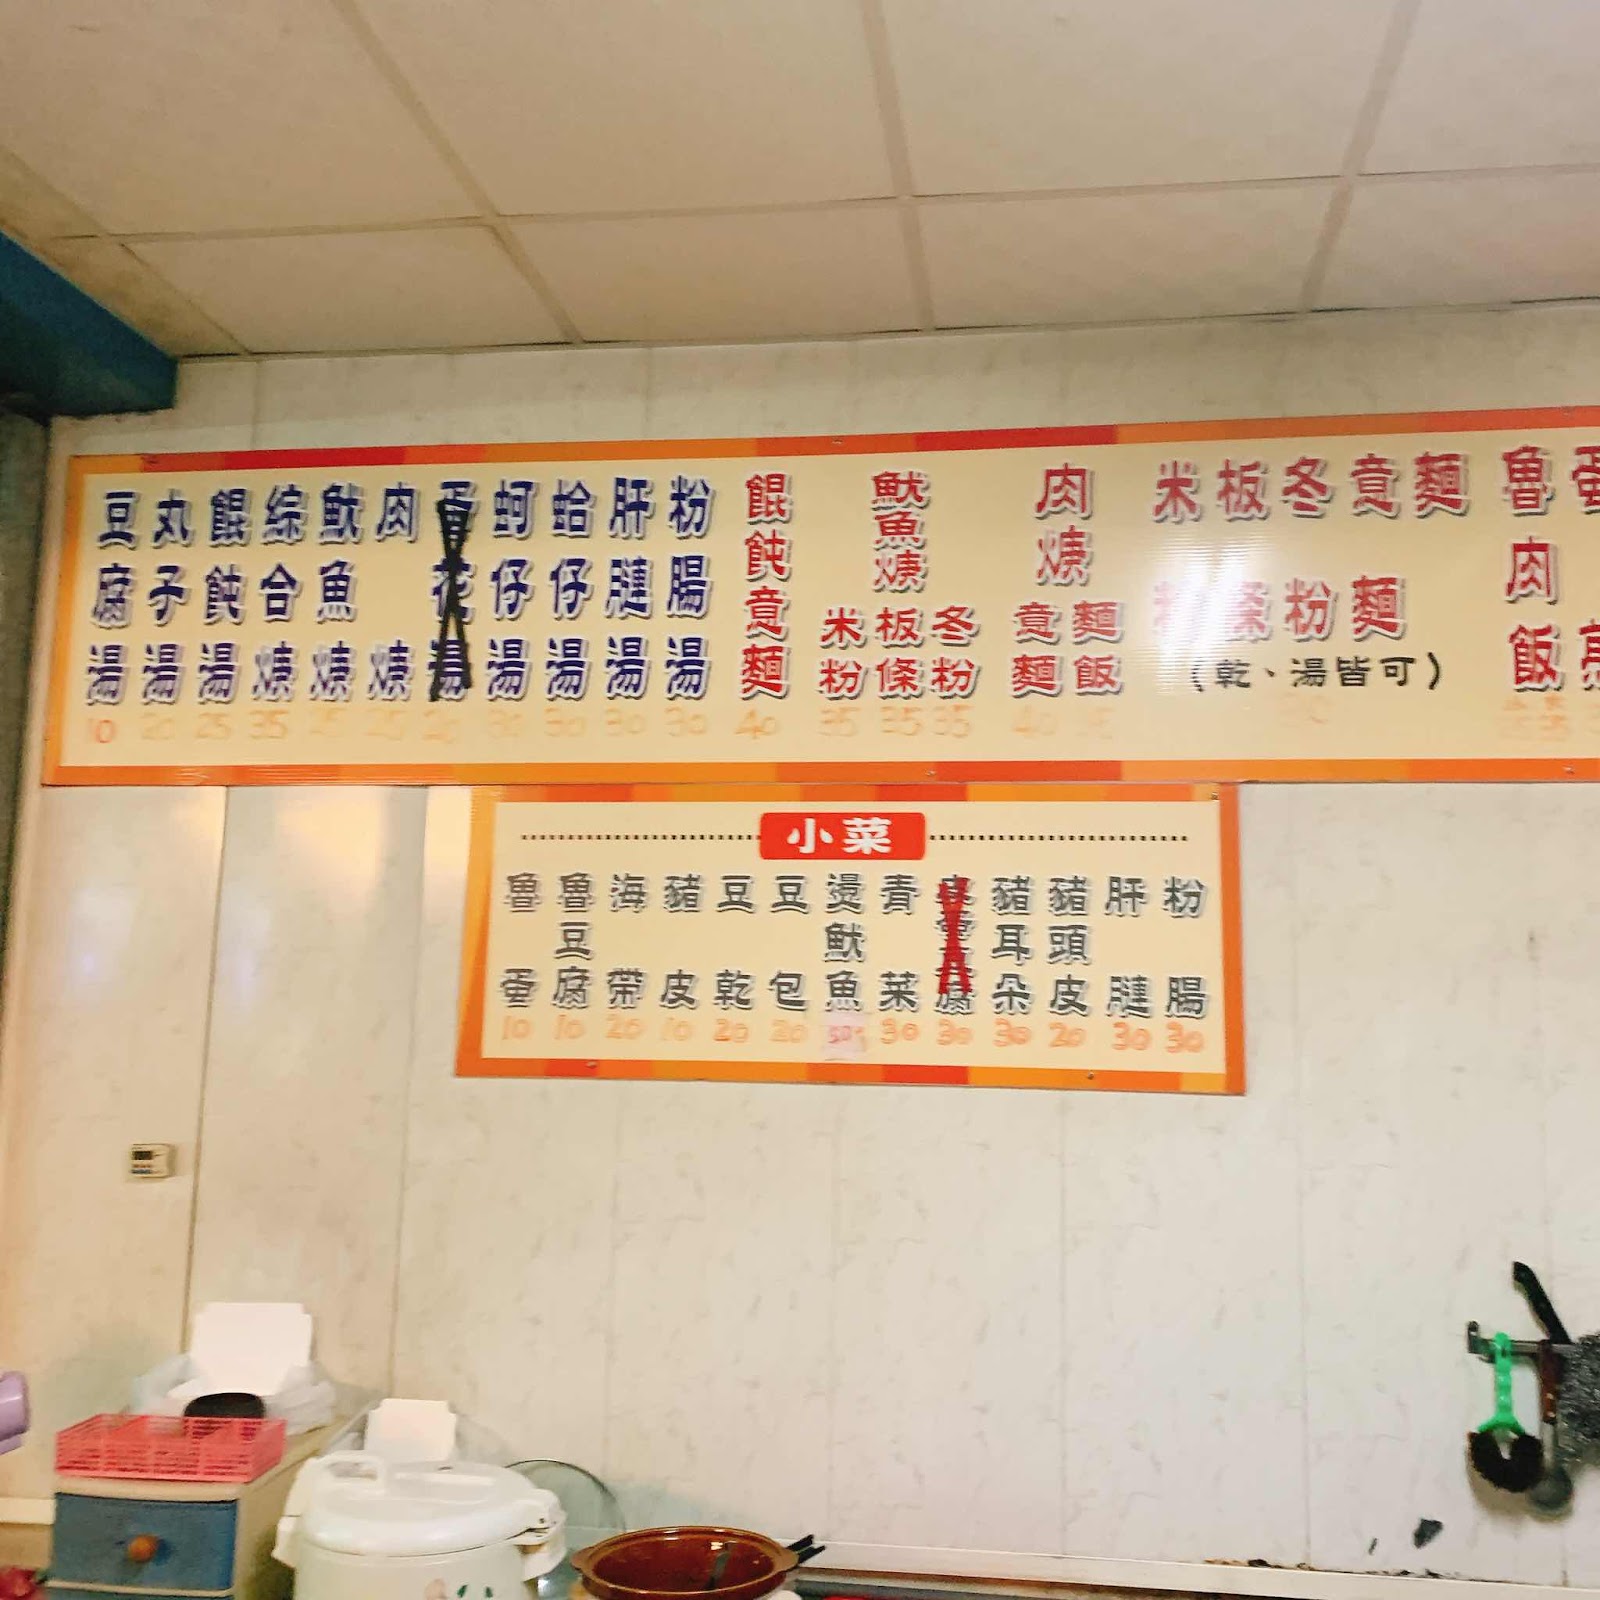 豆腐湯 10
丸子湯 20
餛飩湯 25
綜合焿 35
魷魚焿
肉焿
蛋花湯
蚵仔湯 30
蛤仔湯 30
肝腱湯 30
粉腸湯 30
餛飩意麵 40
魷魚焿
米粉 35
板條 35
冬粉 35
肉焿
意麵 40
麵飯
米粉
板條
冬粉
意麵
麵
(乾、湯皆可)
魯肉飯
蛋
小菜
魯蛋 10
魯豆腐 10
海帶 20
豬皮 10
豆乾 20
豆包 20
燙魷魚
青菜 30
皮蛋豆腐 30
豬耳朵 30
豬頭皮 20
肝腱 30
粉腸 30